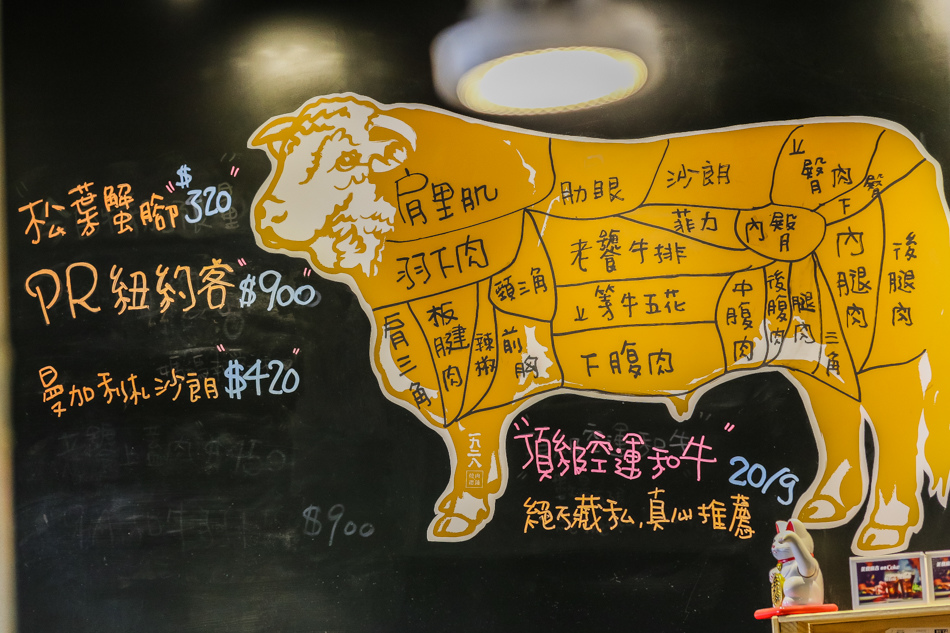 松葉蟹腳 "$320"
PR紐約客 "$900"
曼加利札沙朗 "$420"
$900
肩里肌
肋眼
沙朗
上臀肉
下臀
羽下肉
頸三角
老饕牛排
菲力
內臀
內腿肉
後腿肉
肩三角
板腱肉
辣椒
前胸
上等牛五花
下腹肉
中腹肉
後腹肉
腿肉
三角
五二八
"頂級空運和牛" 20/g
絕不藏私,真心推薦